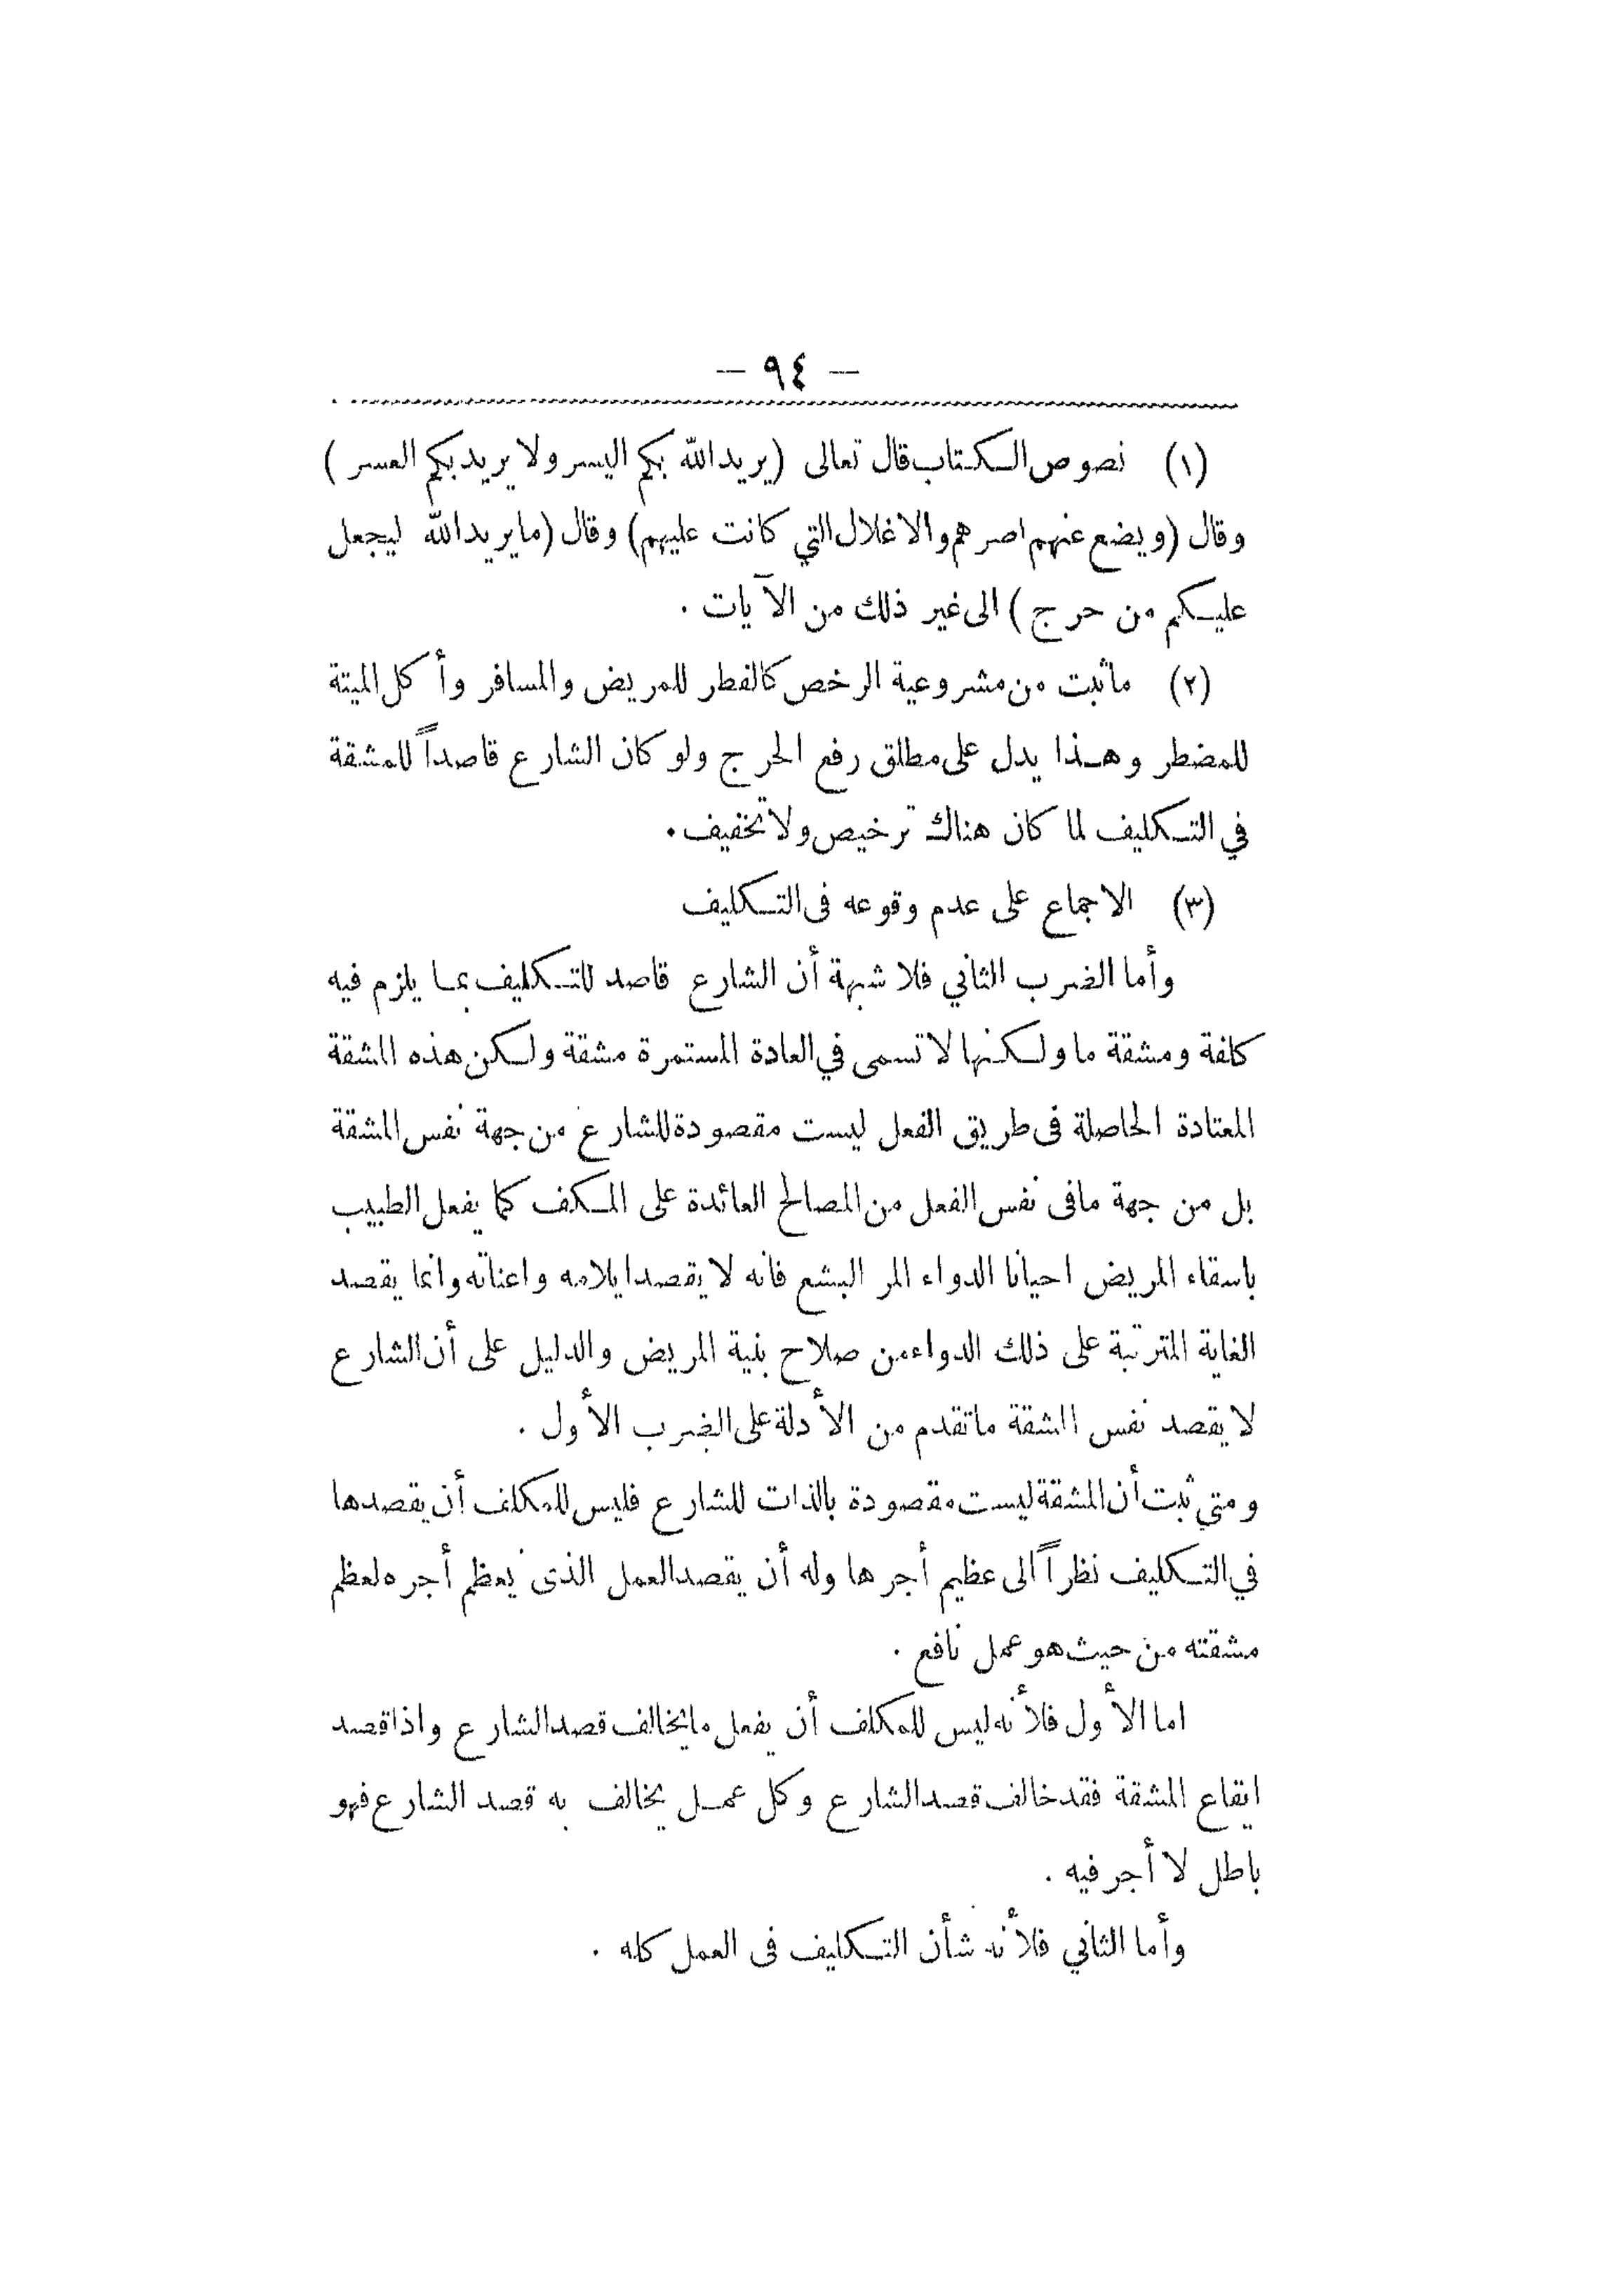 — ٩٤ —
(١) نصوص الكتاب قال تعالى (يريد الله بكم اليسر ولا يريد بكم العسر)
وقال (ويضع عنهم اصرهم والاغلال التي كانت عليهم) وقال (ما يريد الله ليجعل
عليكم من حرج) الى غير ذلك من الآيات .
(٢) ما ثبت من مشروعية الرخص كالفطر للمريض والمسافر وأكل الميتة
للمضطر وهذا يدل على مطلق رفع الحرج ولو كان الشارع قاصداً للمشقة
في التكليف لما كان هناك ترخيص ولا تخفيف .
(٣) الاجماع على عدم وقوعه فى التكليف
وأما الضرب الثاني فلا شبهة أن الشارع قاصد للتكليف بما يلزم فيه
كلفة ومشقة ما ولكنها لا تسمى في العادة المستمرة مشقة ولكن هذه المشقة
المعتادة الحاصلة فى طريق الفعل ليست مقصودة للشارع من جهة نفس المشقة
بل من جهة مافى نفس الفعل من المصالح العائدة على المكف كما يفعل الطبيب
باسقاء المريض احيانا الدواء المر البشع فانه لا يقصد ايلامه واعناته وانما يقصد
الغاية المترتبة على ذلك الدواء من صلاح بنية المريض والدليل على أن الشارع
لا يقصد نفس المشقة ما تقدم من الأدلة على الضرب الأول .
ومتي ثبت أن المشقة ليست مقصودة بالذات للشارع فليس للمكلف أن يقصدها
في التكليف نظراً الى عظيم أجرها وله أن يقصد العمل الذى يعظم أجره لعظم
مشقته من حيث هو عمل نافع .
اما الأول فلأنه ليس للمكلف أن يفعل ما يخالف قصد الشارع واذا قصد
ايقاع المشقة فقد خالف قصد الشارع وكل عمل يخالف به قصد الشارع فهو
باطل لا أجر فيه .
وأما الثاني فلأنه شأن التكليف فى العمل كله .